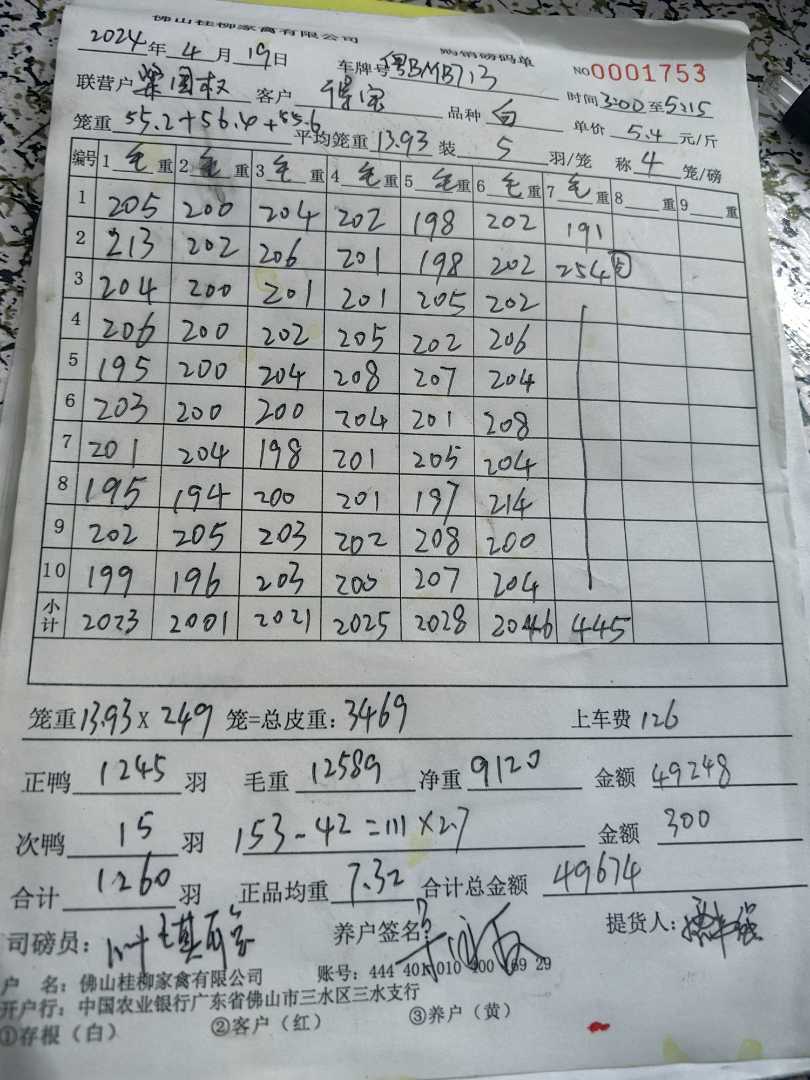 佛山桂柳家禽有限公司 购销磅码单
2024年4月19日 车牌号粤BMB713 NO0001753
联营户梁国权 客户得宝 品种白 时间3:00至5:15
笼重55.2+56.4+55.6 平均笼重13.93装5羽/笼 称4笼/磅 单价5.4元/斤
编号 1毛重 2毛重 3毛重 4毛重 5毛重 6毛重 7毛重 8重 9重
1 205 200 204 202 198 202 191
2 213 202 206 201 198 202 254⑤
3 204 200 201 201 205 202
4 206 200 202 205 202 206
5 195 200 204 208 207 204
6 203 200 200 204 201 208
7 201 204 198 201 205 204
8 195 194 200 201 197 214
9 202 205 203 202 208 200
10 199 196 203 200 207 204
小计 2023 2001 2021 2025 2028 2046 445
笼重13.93×249笼=总皮重:3469 上车费126
正鸭1245羽 毛重12589净重9120 金额49248
次鸭15羽 153-42=111×2.7 金额300
合计1260羽 正品均重7.32合计总金额49674
司磅员: 养户签名: 提货人:
户 名:佛山桂柳家禽有限公司 账号:444 401 010 400 69 29
开户行:中国农业银行广东省佛山市三水区三水支行
①存根(白) ②客户(红) ③养户(黄)